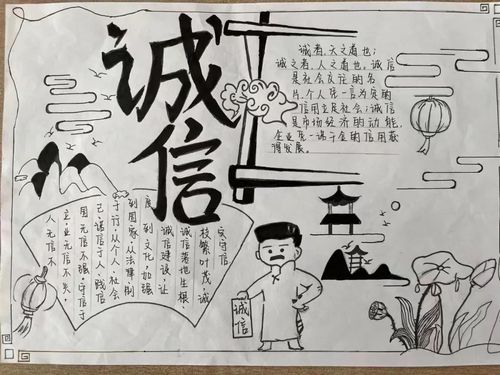 诚信
诚者，天之道也；
诚之者，人之道也。诚信
是社会交往的名
片，个人凭一言为定的
信用立足社会；诚信
是市场经济的动能，
企业凭一诺千金的信用获
得发展。
人无信不
立，业无信不兴，
国无信不强。守信于
己，诚信于人，践信
于行，从个人、社会
到国家，从法律、制
度到文化，加强
诚信建设，让
诚信落地生根，
枝繁叶茂。诚
实守信
诚信